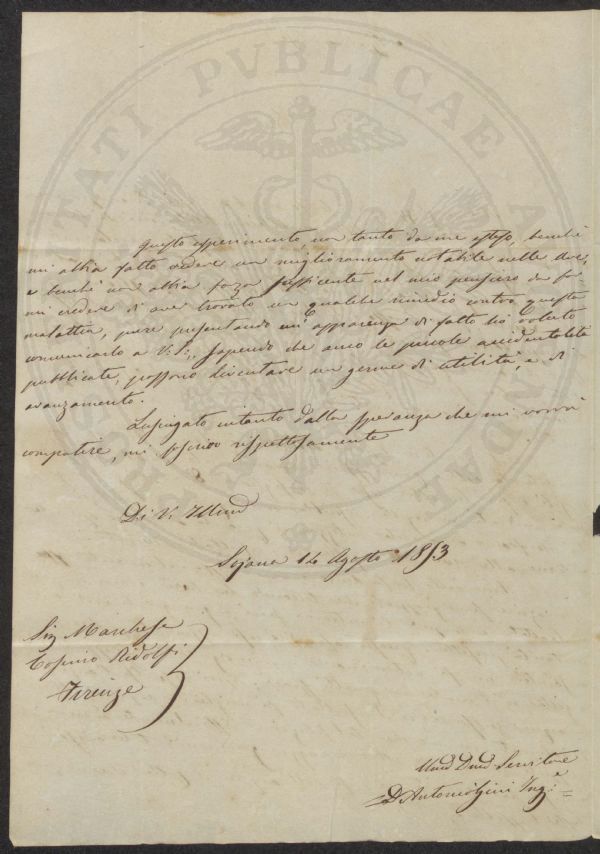 Questo esperimento, non tanto da me esteso, benchè
mi abbia fatto vedere un miglioramento notabile nelle Uve,
e benchè non abbia forza sufficiente nel mio pensiero da far
mi credere di aver trovato un qualche rimedio contro questa
malattia, pure presentando un'apparenza di fatto hò voluto
comunicarlo a V. S., sapendo che anco le piccole accidentalità
pubblicate, possono diventare un germe di utilità, e di
avanzamento.
Lusingato intanto dalla speranza che mi vorrà
compatire, mi soscrivo rispettosamente
Di V.
14 Agosto 1853
Sig Marchese
Cosimo Ridolfi
Firenze
Servitore
D Antonio Ing.